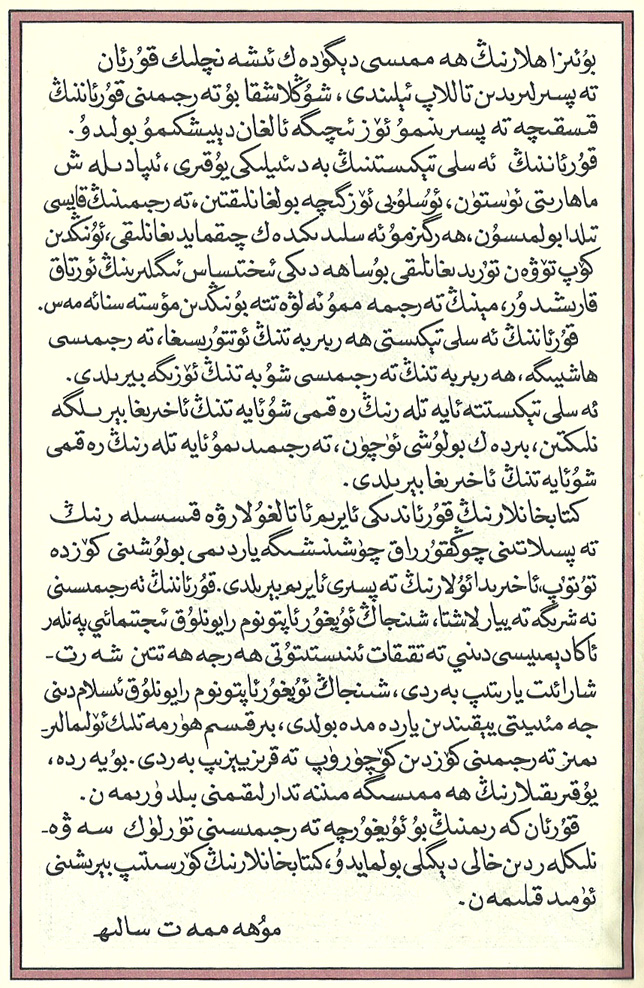 بۇئىزاھلارنىڭ ھەممىسى دېگۈدەك ئىشەنچلىك قۇرئان
تەپسىرلىرىدىن تاللاپ ئېلىندى، شۇڭلاشقا بۇ تەرجىمىنى قۇرئاننىڭ
قىسقىچە تەپسىرىنىمۇ ئۆز ئىچىگە ئالغان دېيىشكىمۇ بولىدۇ.
قۇرئاننىڭ ئەسلى تېكىستىنىڭ بەدىئىيلىكى يۇقىرى، ئىپادىلەش
ماھارىتى ئۈستۈن، ئۇسلۇبى ئۆزگىچە بولغانلىقتىن، تەرجىمىنىڭ قايسى
تىلدا بولمىسۇن، ھەرگىزمۇ ئەسلىدىكىدەك چىقمايدىغانلىقى، ئۇنىڭدىن
كۆپ تۆۋەن تۇرىدىغانلىقى بۇ ساھەدىكى ئىختىساس ئىگىلىرىنىڭ ئورتاق
قارىشىدۇر، مېنىڭ تەرجىمەممۇ ئەلۋەتتە بۇنىڭدىن مۇستەسنا ئەمەس.
قۇرئاننىڭ ئەسلى تېكىستى ھەربىر بەتنىڭ ئوتتۇرىسىغا، تەرجىمىسى
ھاشىيىگە، ھەربىر بەتنىڭ تەرجىمىسى شۇ بەتنىڭ ئۆزىگە بېرىلدى.
ئەسلى تېكىستتە ئايەتلەرنىڭ رەقمى شۇ ئايەتنىڭ ئاخىرىغا بېرىلگە
نلىكتىن، بىردەك بولۇشى ئۈچۈن، تەرجىمىدىمۇ ئايەتلەرنىڭ رەقمى
شۇ ئايەتنىڭ ئاخىرىغا بېرىلدى.
كىتابخانلارنىڭ قۇرئاندىكى ئايرىم ئاتالغۇلار ۋە قىسسىلەرنىڭ
تەپسىلاتىنى چوڭقۇرراق چۈشىنىشىگە ياردىمى بولۇشىنى كۆزدە
تۇتۇپ، ئاخىرىدا ئۇلارنىڭ تەپسىرى ئايرىم بېرىلدى. قۇرئاننىڭ تەرجىمىسىنى
نەشرىگە تەييارلاشتا، شىنجاڭ ئۇيغۇر ئاپتونوم رايونلۇق ئىجتىمائىي پەنلەر
ئاكادېمىيىسى دىنىي تەتقىقات ئىنستىتۇتى ھەرجەھەتتىن شەرت-
شارائىت يارىتىپ بەردى، شىنجاڭ ئۇيغۇر ئاپتونوم رايونلۇق ئىسلام دىنى
جەمئىيىتى يېقىندىن ياردەمدە بولدى، بىرقىسىم ھۈرمەتلىك ئۆلىمالىر-
ىمىز تەرجىمىنى كۆزدىن كۆچۈرۈپ تەقرىز يېزىپ بەردى. بۇ يەردە،
يۇقىرىقىلارنىڭ ھەممىسىگە مىننەتدارلىقىمنى بىلدۈرىمەن.
قۇرئان كەرىمنىڭ بۇ ئۇيغۇرچە تەرجىمىسىنى تۈرلۈك سەۋە-
نلىكلەردىن خالى دېگىلى بولمايدۇ، كىتابخانلارنىڭ كۆرسىتىپ بېرىشىنى
ئۈمىد قىلىمەن.
مۇھەممەت سالىھ